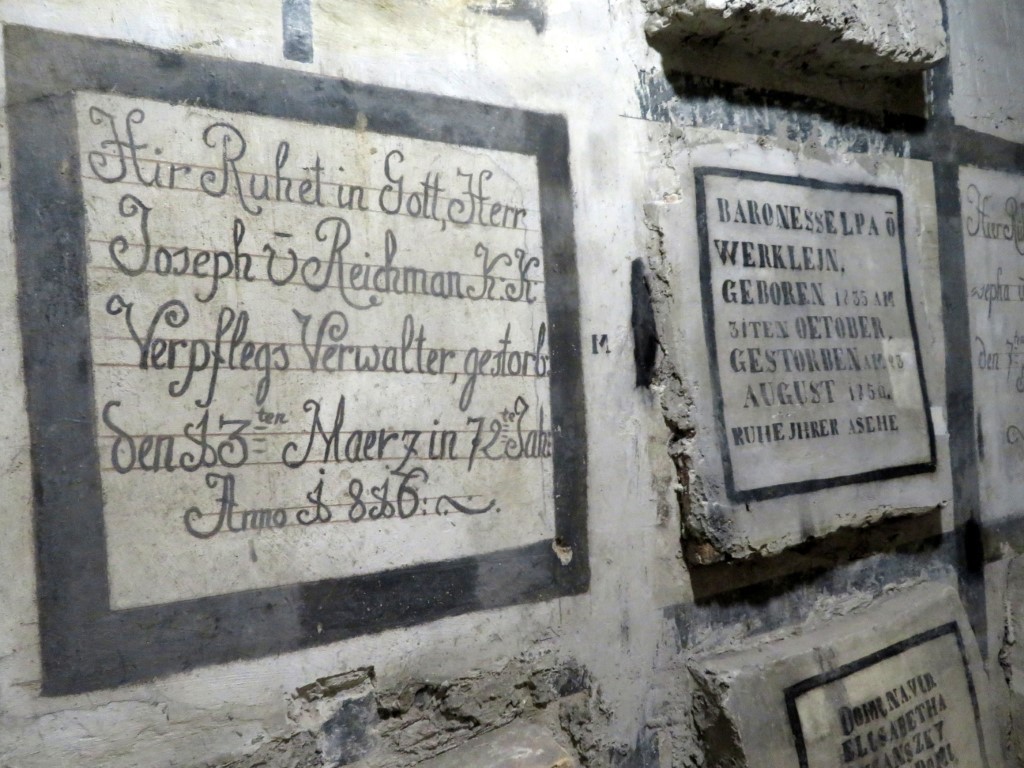 Hir Ruhet in Gott, Herr
Joseph v̄ Reichman K: K:
Verpflegs Verwalter, gestorb:
den 13ten Maerz in 72te Jah:
Anno 1816:
M
BARONESSE LPA Ō
WERKLEJN.
GEBOREN 1735 AM
31TEN OETOBER.
GESTORBEN AM
AUGUST
RUHE JHRER ASEHE
Hir
den 7
ELISABETHA